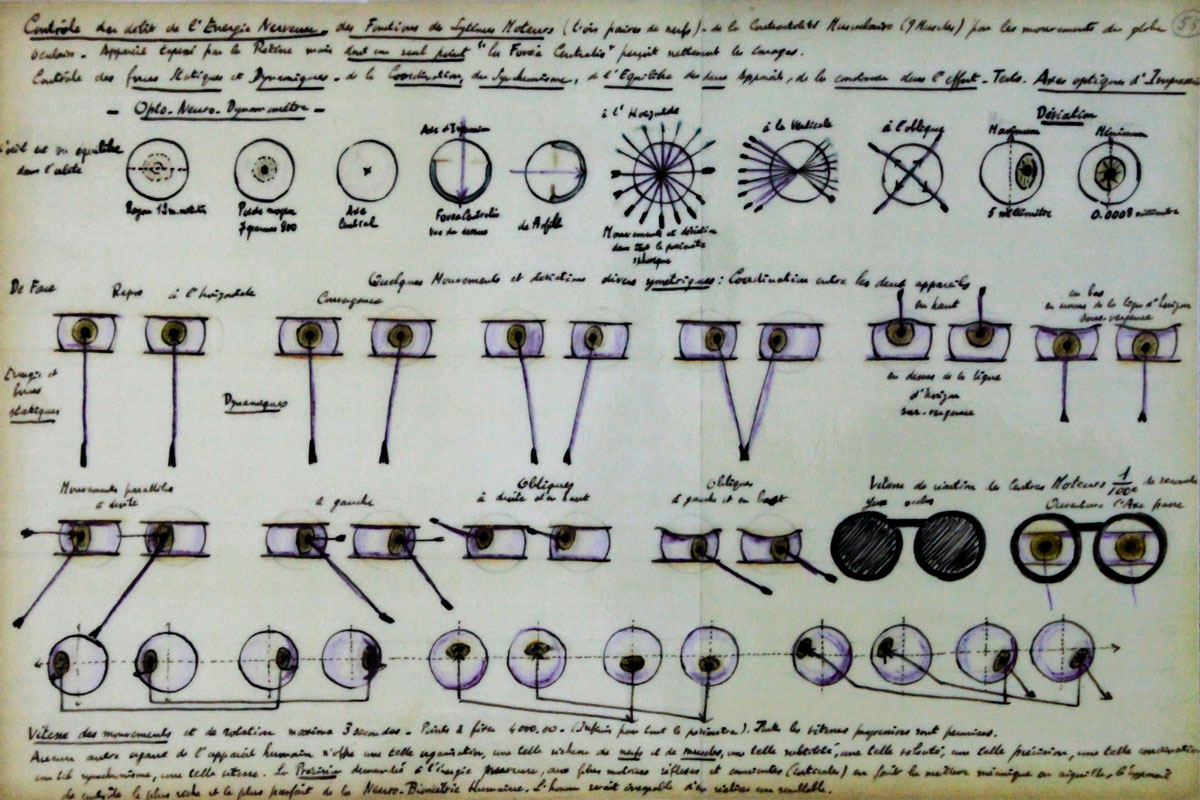 Contrôle du débit de l'Energie Nerveuse, des Fonctions du Système Moteurs (trois paires de nerfs) - de la Contractilité Musculaire (9 Muscles) par les mouvements du globe
oculaire - Appareil exposé par la Rétine mais dont un seul point "la Foréa Centralis" perçoit nettement les images.
Contrôle des forces Statiques et Dynamiques - de la Coordination, du Synchronisme, de l'Equilibre des deux Appareils, de la constance dans l'effort - Tests. Axes optiques d'Impression
- Opto-Neuro-Dynamomètre -
l'œil est en équilibre
dans l'orbite
Rayon 12 m
Poids moyen
7 grammes 800
Axe
Central
Axe d'Impression
Foréa Centralis
vue du dessus
de Profil
à l'Horizontale
Mouvements et déviation
dans tout le périmètre
à la Verticale
à l'oblique
Déviation
Maximum
5 millimètre
Minimum
0.0008 millimètre
Quelques Mouvements et déviations divers symétriques : Coordination entre les deux appareils
De Face
Repos à l'horizontale
Convergence
en haut
en bas
en dessous de la ligne d'horizon
sous-vergence
Energie et
forces
statiques
Dynamiques
en dessus de la ligne
d'horizon
sur-vergence
Mouvements parallèles
à droite
à gauche
Obliques
à droite et en haut
Obliques
à gauche et en bas
Vitesse de réaction des Centres Moteurs 1/100e de seconde
Yeux occlus
Ouverture l'Axe
Vitesse des mouvements et de rotation maxima 3 secondes - Points à fixer 4000,00 - (Infinis pour tout le périmètre). Toute les vitesses progressives sont permises.
Aucun autre organe de l'appareil humain n'offre une telle organisation, une telle richesse de nerfs et de muscles, une telle subtilité, une telle volonté, une telle précision, une telle coordination
un tel synchronisme, une telle vitesse. La Précision demandée à l'énergie nerveuse, aux fibres motrices réflexes et conscientes (corticales) en font la meilleure mécanique en aiguilles, l'appareil
de contrôle le plus riche et le plus parfait de la Neuro-Biométrie humaine. L'homme serait incapable d'en réaliser un semblable.